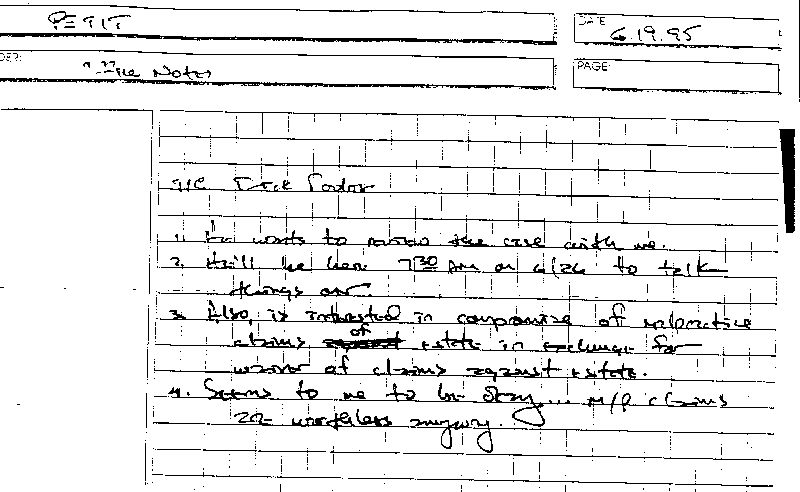 PETIT
DATE 6.19.95
DER:
File Notes
PAGE:
T/C Dick Fodor
1. He wants to review the case with me.
2. He'll be here 7:30 AM on 6/26 to talk
things over.
3. Also, is interested in compromise of malpractice
claims of estate in exchange for
waiver of claims against estate.
4. Seems to me to be okay... M/P claims
are worthless anyway.